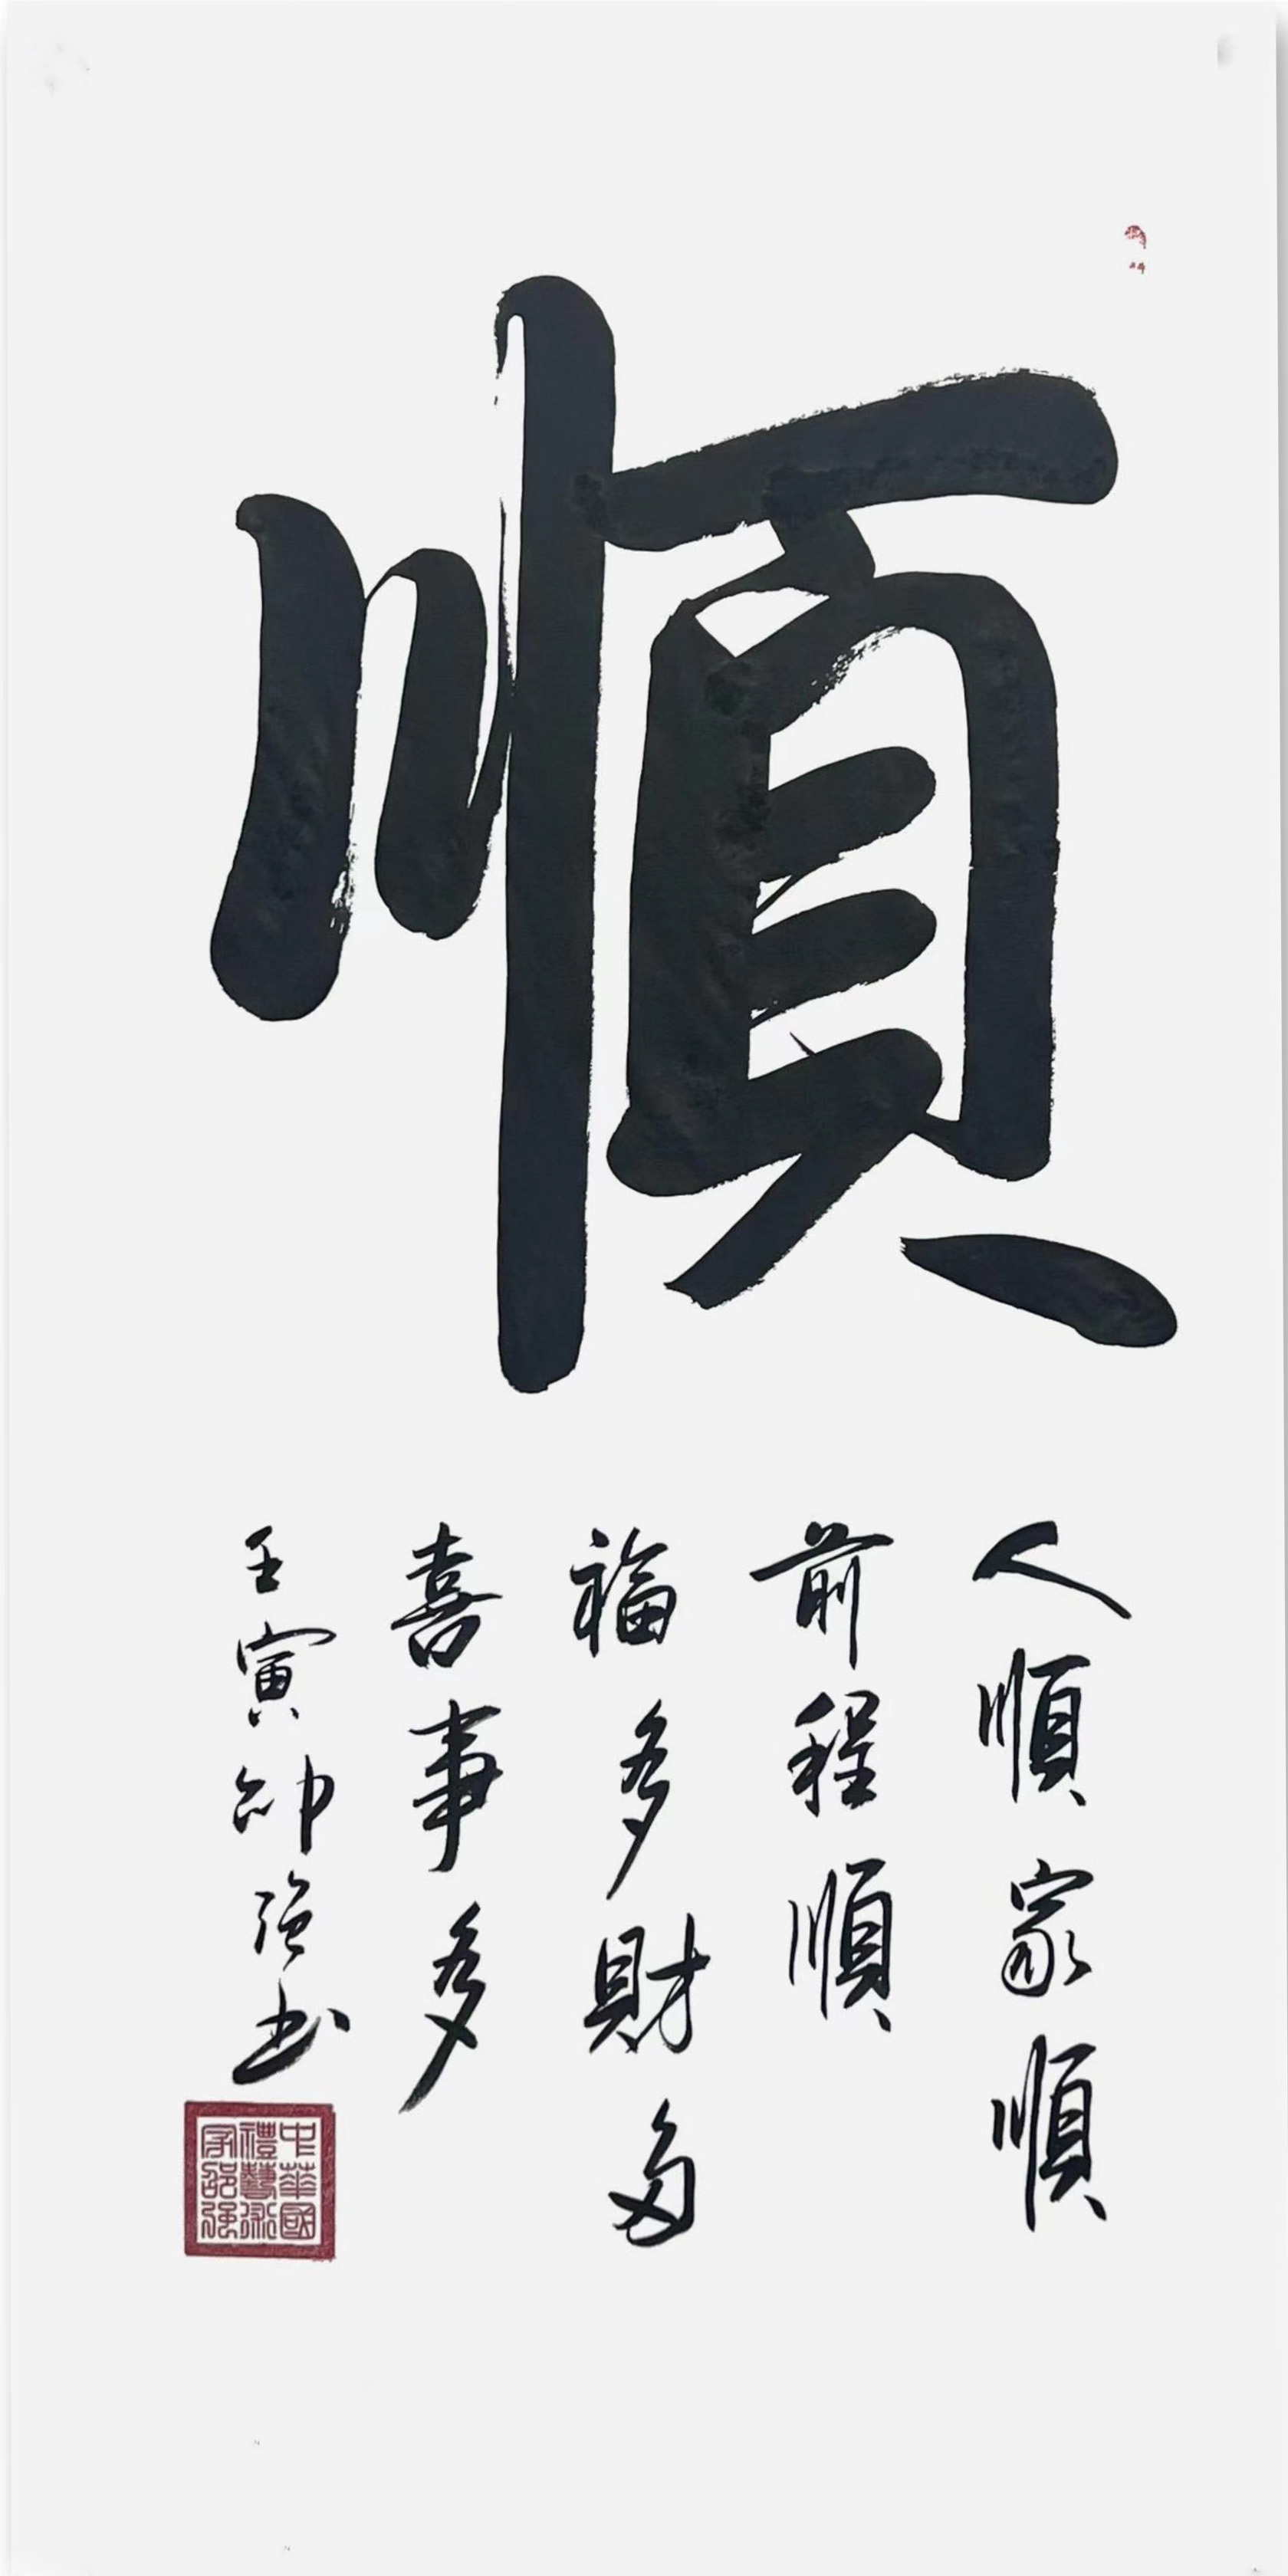 順
人順家順
前程順
福多財多
喜事多
壬寅邵强书
中華國
禮藝術
家邵强